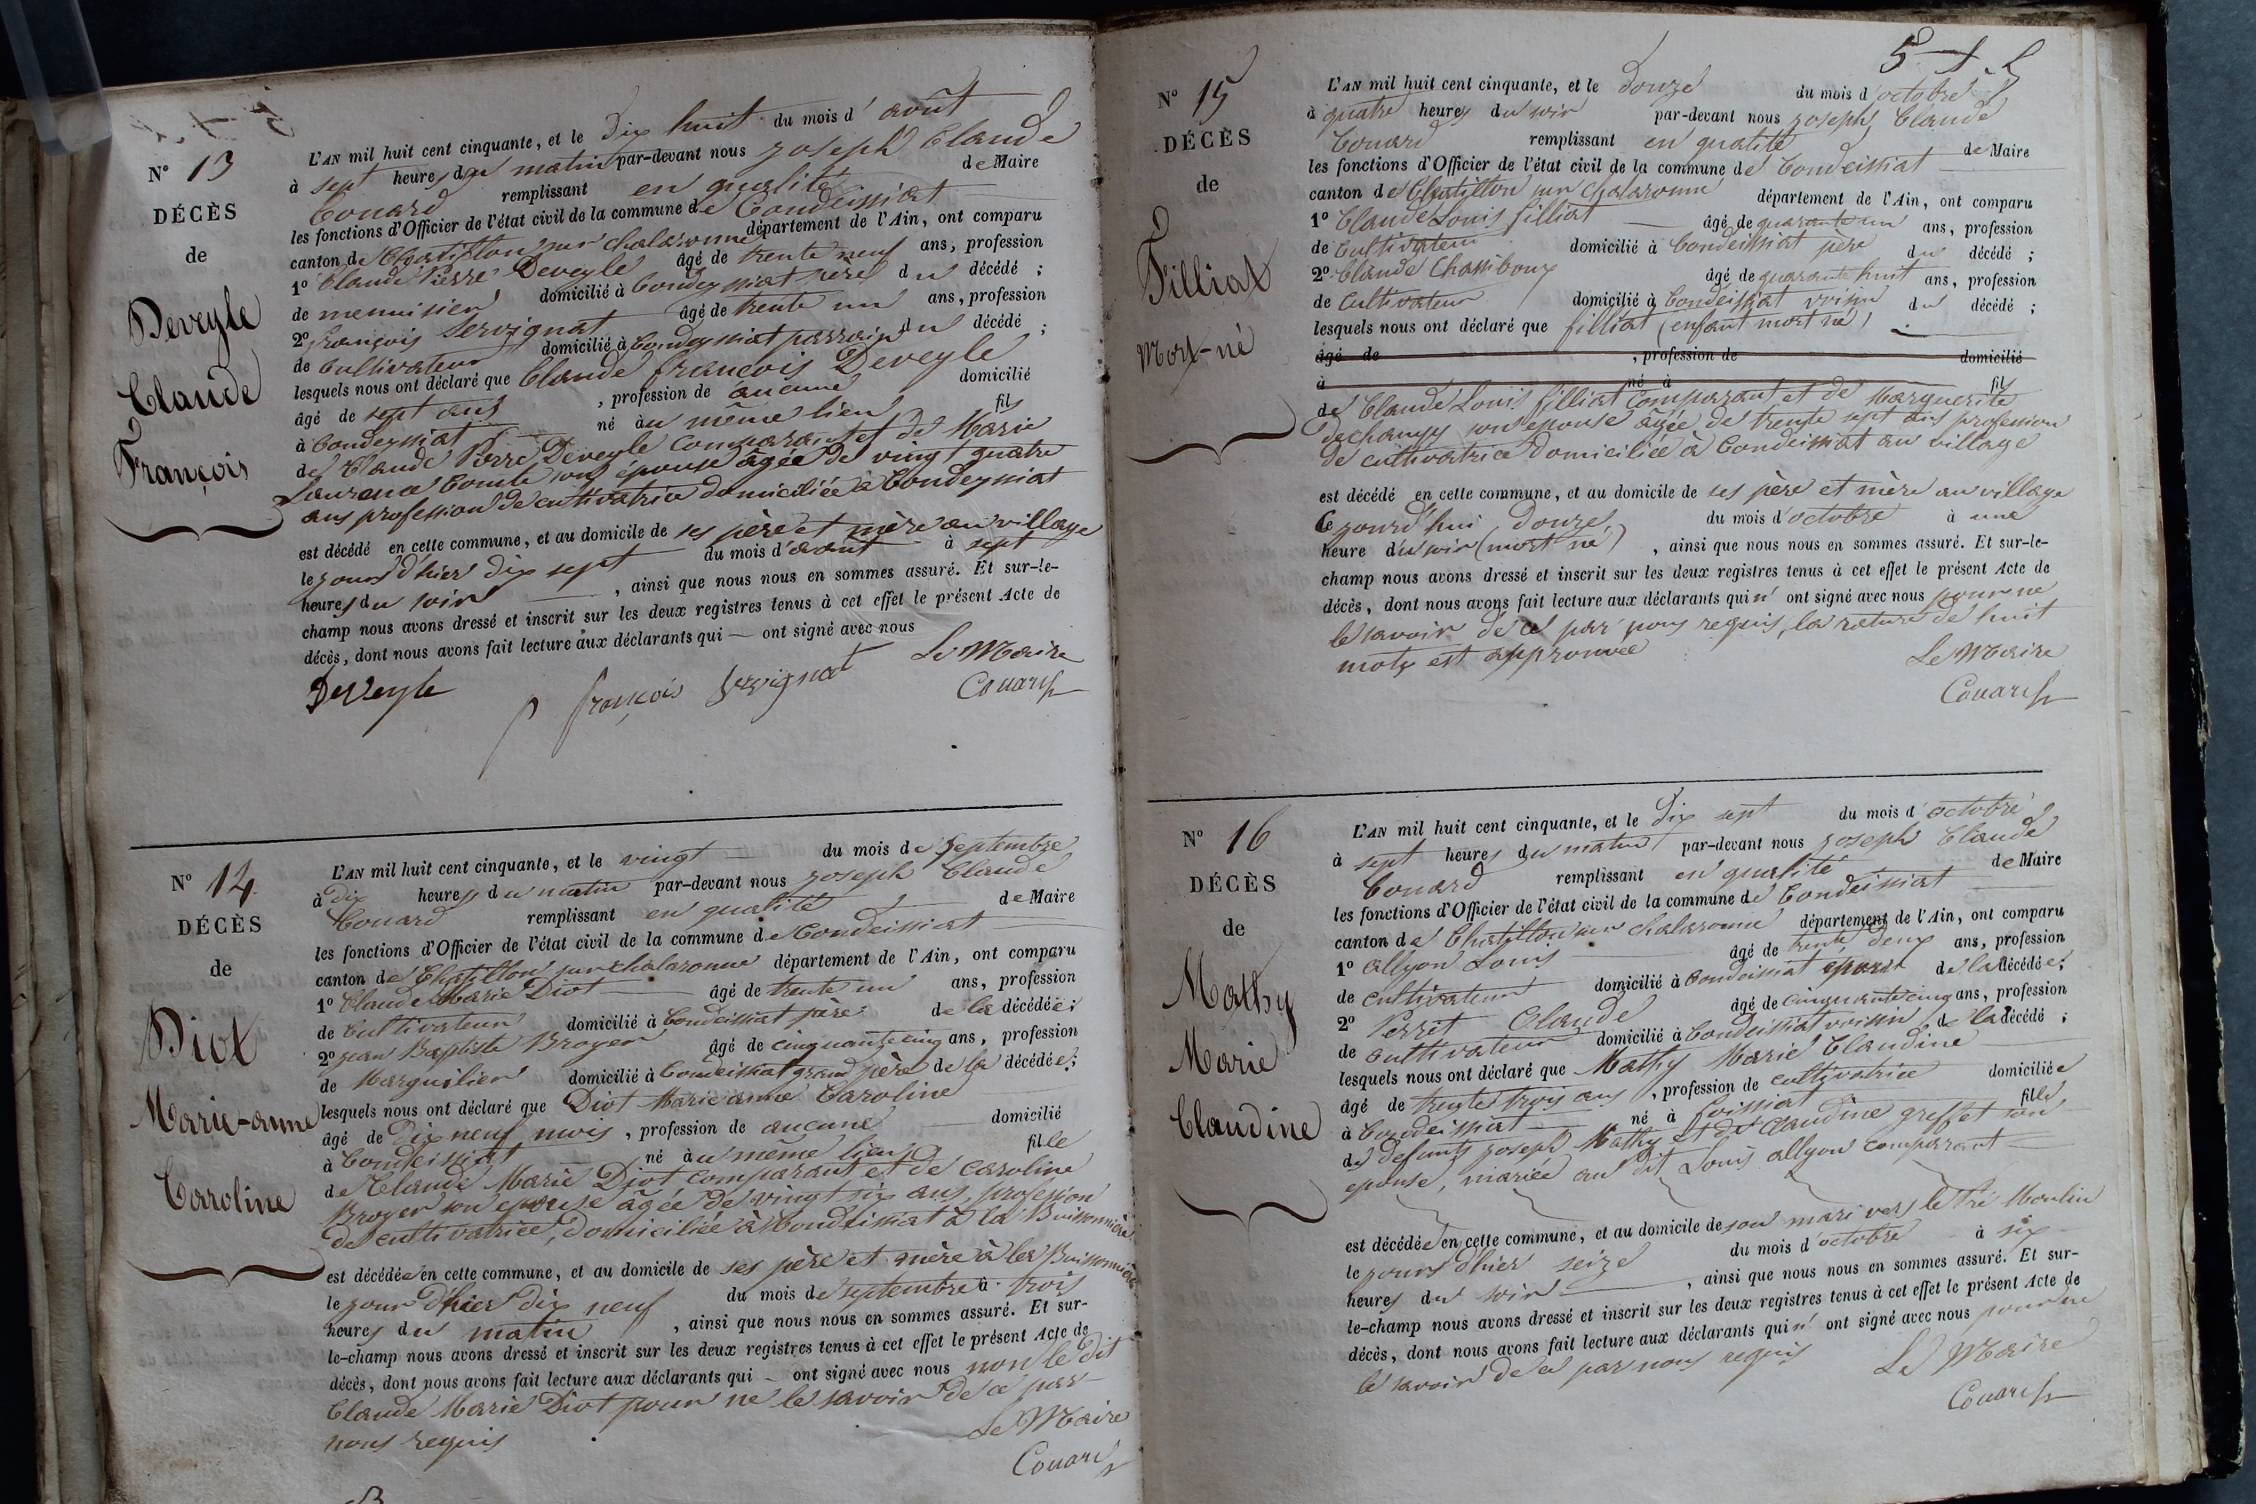 N° 13
DÉCÈS
de
Deveyle
Claude
François
L'AN mil huit cent cinquante, et le dix huit du mois d'août
à sept heures du matin par-devant nous joseph Claude
Couard remplissant en qualité de Maire
les fonctions d'Officier de l'état civil de la commune de Condeissiat
canton de Chatillon sur chalaronne département de l'Ain, ont comparu
1° Claude Pierre Deveyle âgé de trente neuf ans, profession
de menuisier domicilié à Condeyssiat père du décédé ;
2° françois Servignat âgé de trente un ans, profession
de Cultivateur domicilié à Condeyssiat parrain du décédé ;
lesquels nous ont déclaré que Claude françois Deveyle
âgé de sept ans , profession de aucune domicilié
à Condeyssiat né au même lieu fils
de Claude Pierre Deveyle Comparant et de Marie
Laurence Comte son épouse âgée de vingt quatre
ans profession de cultivatrice domiciliée à Condeyssiat
est décédé en cette commune, et au domicile de ses père et mère au village
le jourd'hier dix sept du mois d'août à sept
heures du soir , ainsi que nous nous en sommes assuré. Et sur-le-
champ nous avons dressé et inscrit sur les deux registres tenus à cet effet le présent Acte de
décès, dont nous avons fait lecture aux déclarants qui — ont signé avec nous
Le Maire
DeVeyle françois Servignat Couard
N° 14
DÉCÈS
de
Diot
Marie-anne
Caroline
L'AN mil huit cent cinquante, et le vingt du mois de Septembre
à dix heures du matin par-devant nous joseph Claude
Couard remplissant en qualité de Maire
les fonctions d'Officier de l'état civil de la commune de Condeissiat
canton de Chatillon sur chalaronne département de l'Ain, ont comparu
1° Claude Marie Diot âgé de trente un ans, profession
de Cultivateur domicilié à Condeissiat père de la décédée ;
2° jean Baptiste Broyer âgé de cinquante cinq ans, profession
de Marguilier domicilié à Condeissiat grand père de la décédée ;
lesquels nous ont déclaré que Diot Marie anne Caroline
âgé de dix neuf mois , profession de aucune domicilié
à Condeissiat né au même lieu fille
de Claude Marie Diot comparant et de Caroline
Broyer son epouse âgée de vingt six ans, profession
de cultivatrice, domiciliée à Condeissiat à la Buissonnière
est décédée en cette commune, et au domicile de ses père et mère à la Buissonnière
le jour d'hier dix neuf du mois de septembre à trois
heures du matin , ainsi que nous nous en sommes assuré. Et sur-
le-champ nous avons dressé et inscrit sur les deux registres tenus à cet effet le présent Acte de
décès, dont nous avons fait lecture aux déclarants qui — ont signé avec nous non le dit
Claude Marie Diot pour ne le savoir de ce par
nous requis Le Maire
Couard
N° 15
DÉCÈS
de
Filliat
Mort-né
L'AN mil huit cent cinquante, et le douze du mois d'octobre
à quatre heures du soir par-devant nous joseph Claude
Couard remplissant en qualité de Maire
les fonctions d'Officier de l'état civil de la commune de Condeissiat
canton de Chatillon sur chalaronne département de l'Ain, ont comparu
1° Claude Louis filliat âgé de quarante un ans, profession
de Cultivateur domicilié à Condeissiat père du décédé ;
2° Claude Chassiboux âgé de quarante huit ans, profession
de Cultivateur domicilié à Condeissiat voisin du décédé ;
lesquels nous ont déclaré que filliat (enfant mort né)
âgé de , profession de domicilié
à né à fils
de Claude Louis filliat Comparant et de Marguerite
dechangy son epouse âgée de trente sept ans profession
de cultivatrice domiciliée à Condeissiat au village
est décédé en cette commune, et au domicile de ses père et mère au village
le jourd'hui douze du mois d'octobre à une
heure du soir (mort né) , ainsi que nous nous en sommes assuré. Et sur-le-
champ nous avons dressé et inscrit sur les deux registres tenus à cet effet le présent Acte de
décès, dont nous avons fait lecture aux déclarants qui n' ont signé avec nous pour ne
le savoir de ce par nous requis, la rature de huit
mots est approuvée Le Maire
Couard
N° 16
DÉCÈS
de
Mathy
Marie
Claudine
L'AN mil huit cent cinquante, et le dix sept du mois d'octobre
à sept heures du matin par-devant nous joseph Claude
Couard remplissant en qualité de Maire
les fonctions d'Officier de l'état civil de la commune de Condeissiat
canton de Chatillon sur chalaronne département de l'Ain, ont comparu
1° Allyon Louis âgé de trente deux ans, profession
de cultivateur domicilié à Condeissiat époux de la décédée ;
2° Perret Claude âgé de cinquante cinq ans, profession
de cultivateur domicilié à Condeissiat voisin de la décédé ;
lesquels nous ont déclaré que Mathy Marie Claudine
âgé de trente trois ans , profession de cultivatrice domiciliée
à Condeissiat né à foissiat fille
de défunts joseph Mathy et de Claudine greffet son
epouse, mariée au dit Louis allyon comparant
est décédée en cette commune, et au domicile de son mari vers le Moulin
le jour d'hier seize du mois d'octobre à six
heures du soir , ainsi que nous nous en sommes assuré. Et sur-
le-champ nous avons dressé et inscrit sur les deux registres tenus à cet effet le présent Acte de
décès, dont nous avons fait lecture aux déclarants qui n' ont signé avec nous pour ne
le savoir de ce par nous requis Le Maire
Couard